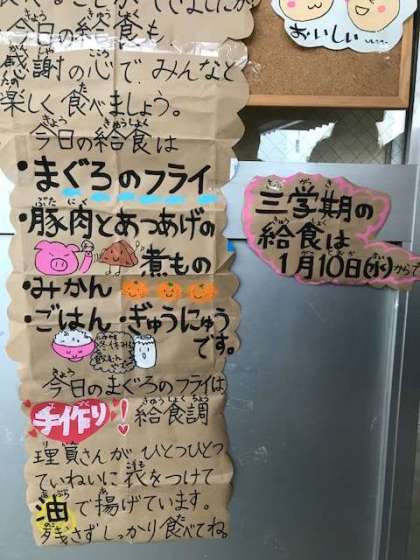 今日の給食も
感謝の心で みんなと
楽しく 食べましょう。
今日の給食は
・まぐろのフライ
・豚肉とあつあげの
煮もの
・みかん
・ごはん・ぎゅうにゅう
です。
今日のまぐろのフライは
手作り! 給食調
理員さんが ひとつひとつ
ていねいに 衣をつけて
油で揚げています。
残さずしっかり食べてね。
おいしい
三学期の
給食は
1月10日(水)から